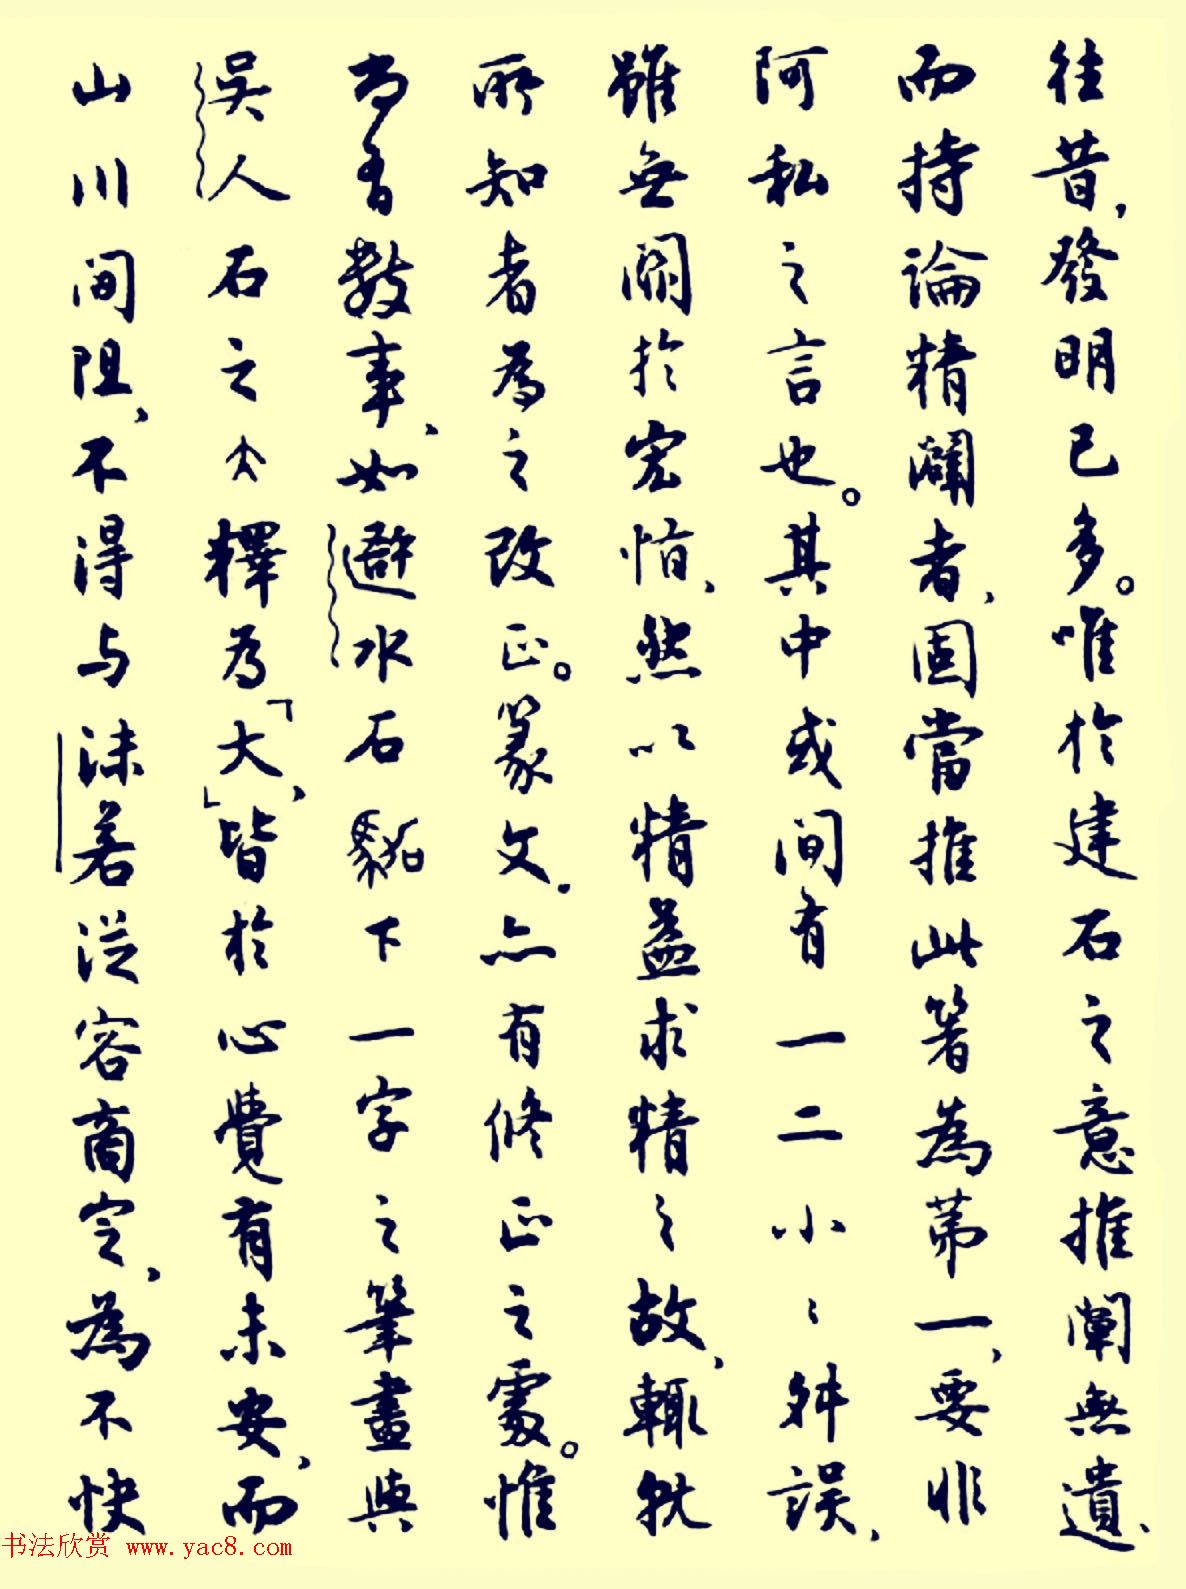 往昔，發明已多。唯於建石之意推闡無遺、
而持論精闢者，固當推此著為第一，要非
阿私之言也。其中或間有一二小〻舛誤，
雖無關於宏恉，然以精益求精之故，輒就
所知者為之改正。篆文．亦有修正之處。惟
尚有數事，如避水石下一字之筆畫與
吳人石之亣釋為「大」，皆於心覺有未安，而
山川间阻，不得与沫若從容商定，為不快
书法欣赏 www.yac8.com